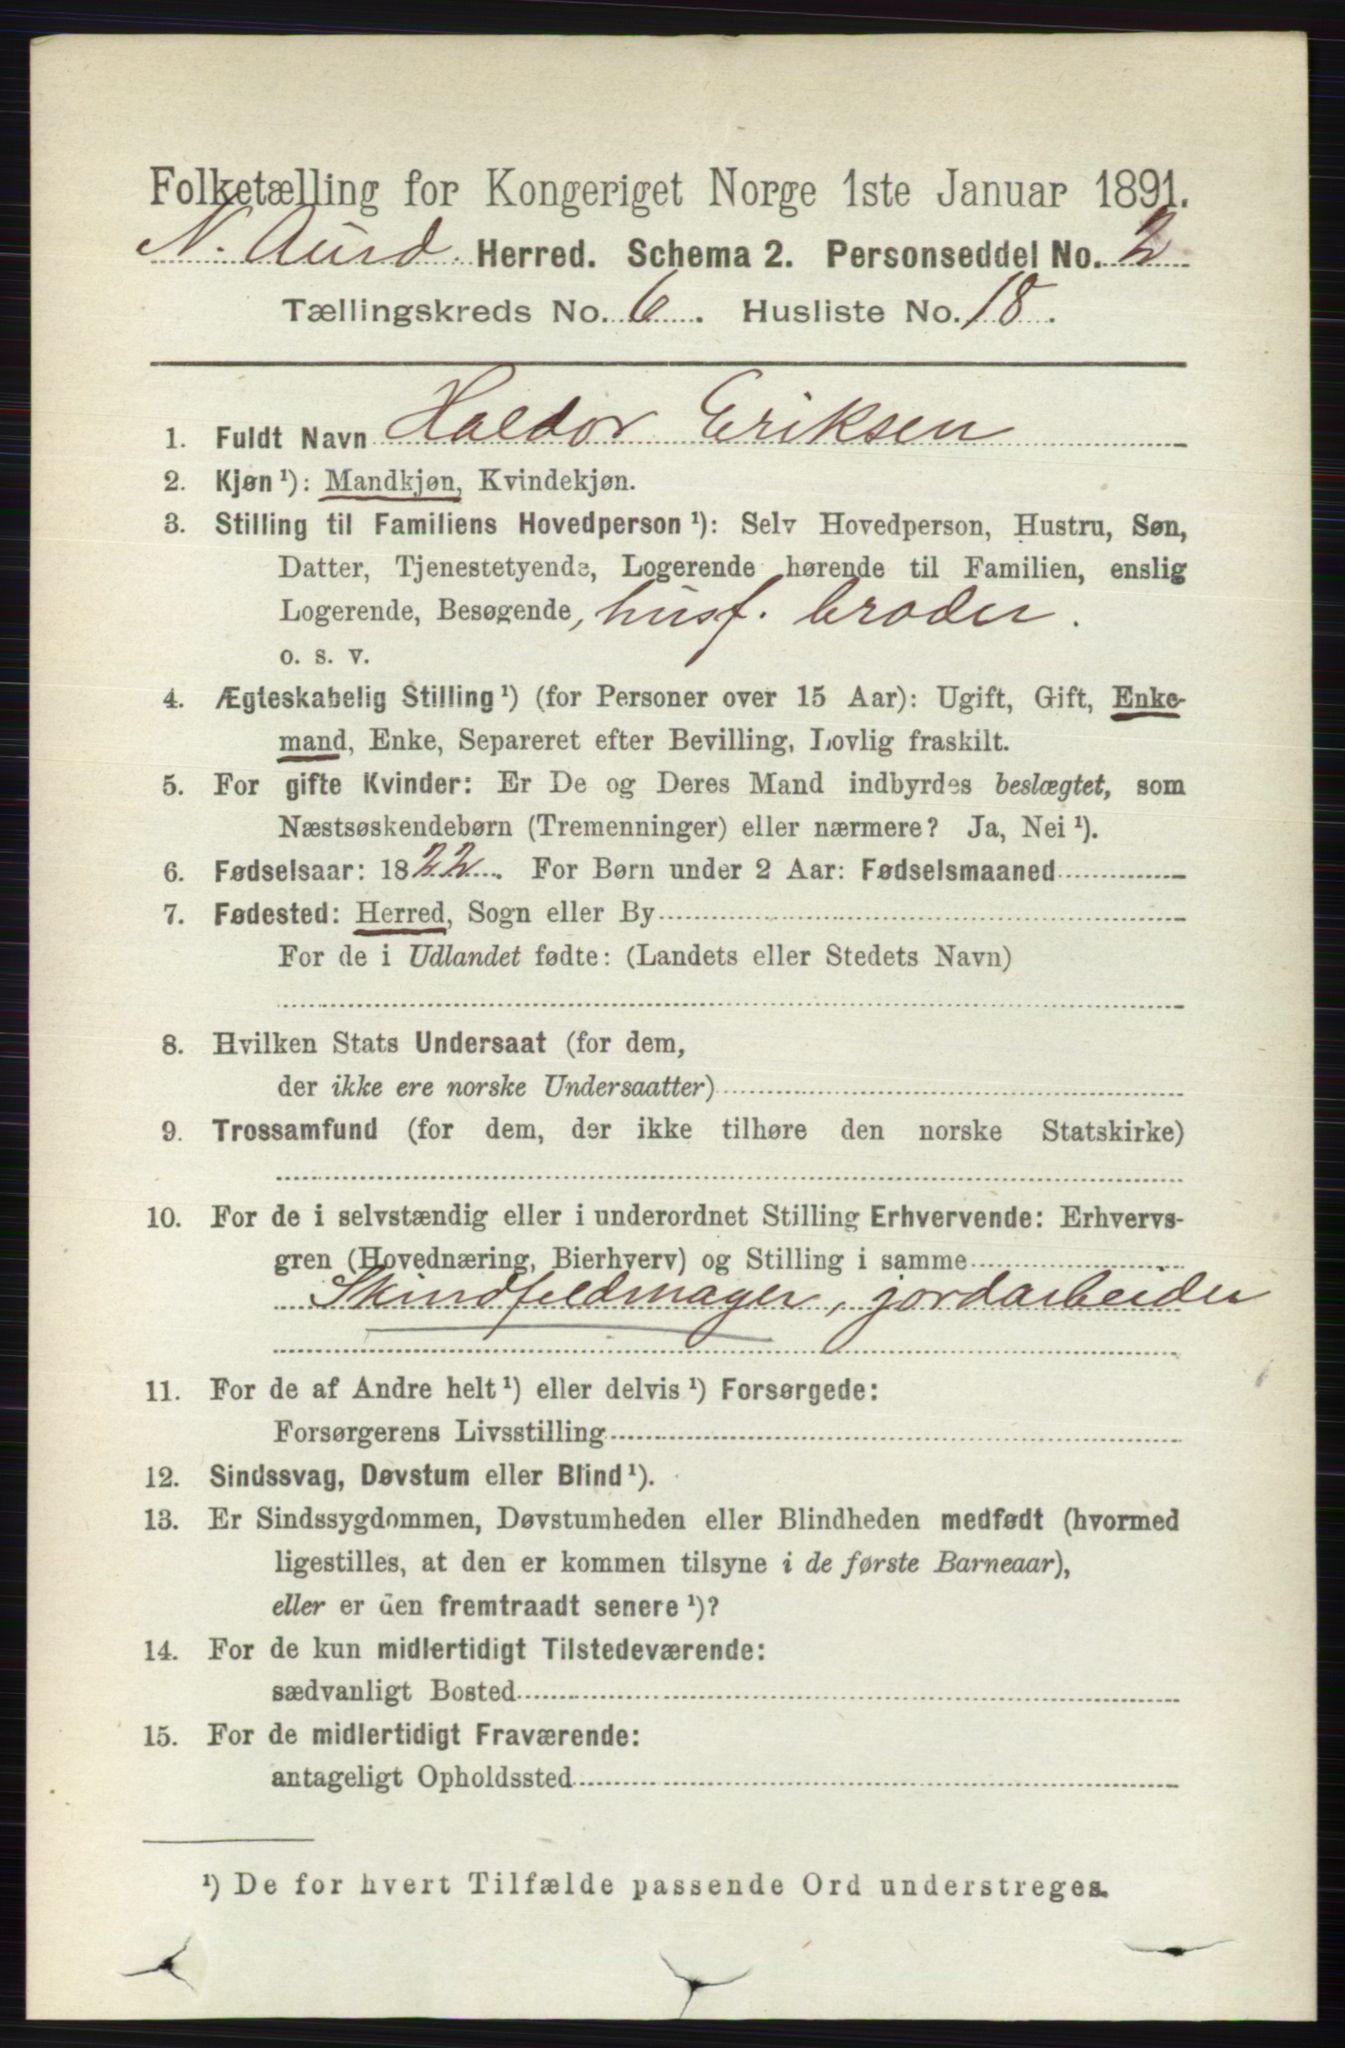 Folketælling for Kongeriget Norge 1ste Januar 1891.
N. Aurd Herred. Schema 2. Personseddel No. 2
Tællingskreds No. 6. Husliste No. 18.
1. Fuldt Navn Haldor Eriksen
2. Kjøn ¹): Mandkjøn, Kvindekjøn.
3. Stilling til Familiens Hovedperson ¹): Selv Hovedperson, Hustru, Søn,
Datter, Tjenestetyende, Logerende hørende til Familien, enslig
Logerende, Besøgende, husf. broder.
o. s. v.
4. Ægteskabelig Stilling ¹) (for Personer over 15 Aar): Ugift, Gift, Enke-
mand, Enke, Separeret efter Bevilling, Lovlig fraskilt.
5. For gifte Kvinder: Er De og Deres Mand indbyrdes beslægtet, som
Næstsøskendebørn (Tremenninger) eller nærmere? Ja, Nei ¹).
6. Fødselsaar: 1822. For Børn under 2 Aar: Fødselsmaaned
7. Fødested: Herred, Sogn eller By
For de i Udlandet fødte: (Landets eller Stedets Navn)
8. Hvilken Stats Undersaat (for dem,
der ikke ere norske Undersaatter)
9. Trossamfund (for dem, der ikke tilhøre den norske Statskirke)
10. For de i selvstændig eller i underordnet Stilling Erhvervende: Erhvervs-
gren (Hovednæring, Bierhverv) og Stilling i samme
Skindfeldmager, jordarbeider
11. For de af Andre helt ¹) eller delvis ¹) Forsørgede:
Forsørgerens Livsstilling
12. Sindssvag, Døvstum eller Blind ¹).
13. Er Sindssygdommen, Døvstumheden eller Blindheden medfødt (hvormed
ligestilles, at den er kommen tilsyne i de første Barneaar),
eller er den fremtraadt senere ¹)?
14. For de kun midlertidigt Tilstedeværende:
sædvanligt Bosted
15. For de midlertidigt Fraværende:
antageligt Opholdssted
¹) De for hvert Tilfælde passende Ord understreges.